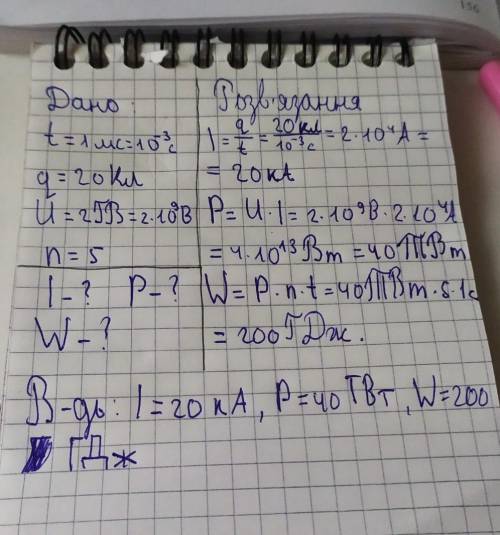 156
Дано:
t = 1 мс = 10⁻³ с
q = 20 Кл
U = 2 ГВ = 2·10⁹ В
n = 5
I - ? P - ?
W - ?
Розв'язання
I = q/t = 20 Кл/10⁻³ с = 2·10⁴ А =
= 20 кА
P = U·I = 2·10⁹ В · 2·10⁴ А
= 4·10¹³ Вт = 40 ТВт
W = P·n·t = 40 ТВт·5·1с
= 200 ГДж.
В-дь: I = 20 кА, P = 40 ТВт, W = 200
ГДж